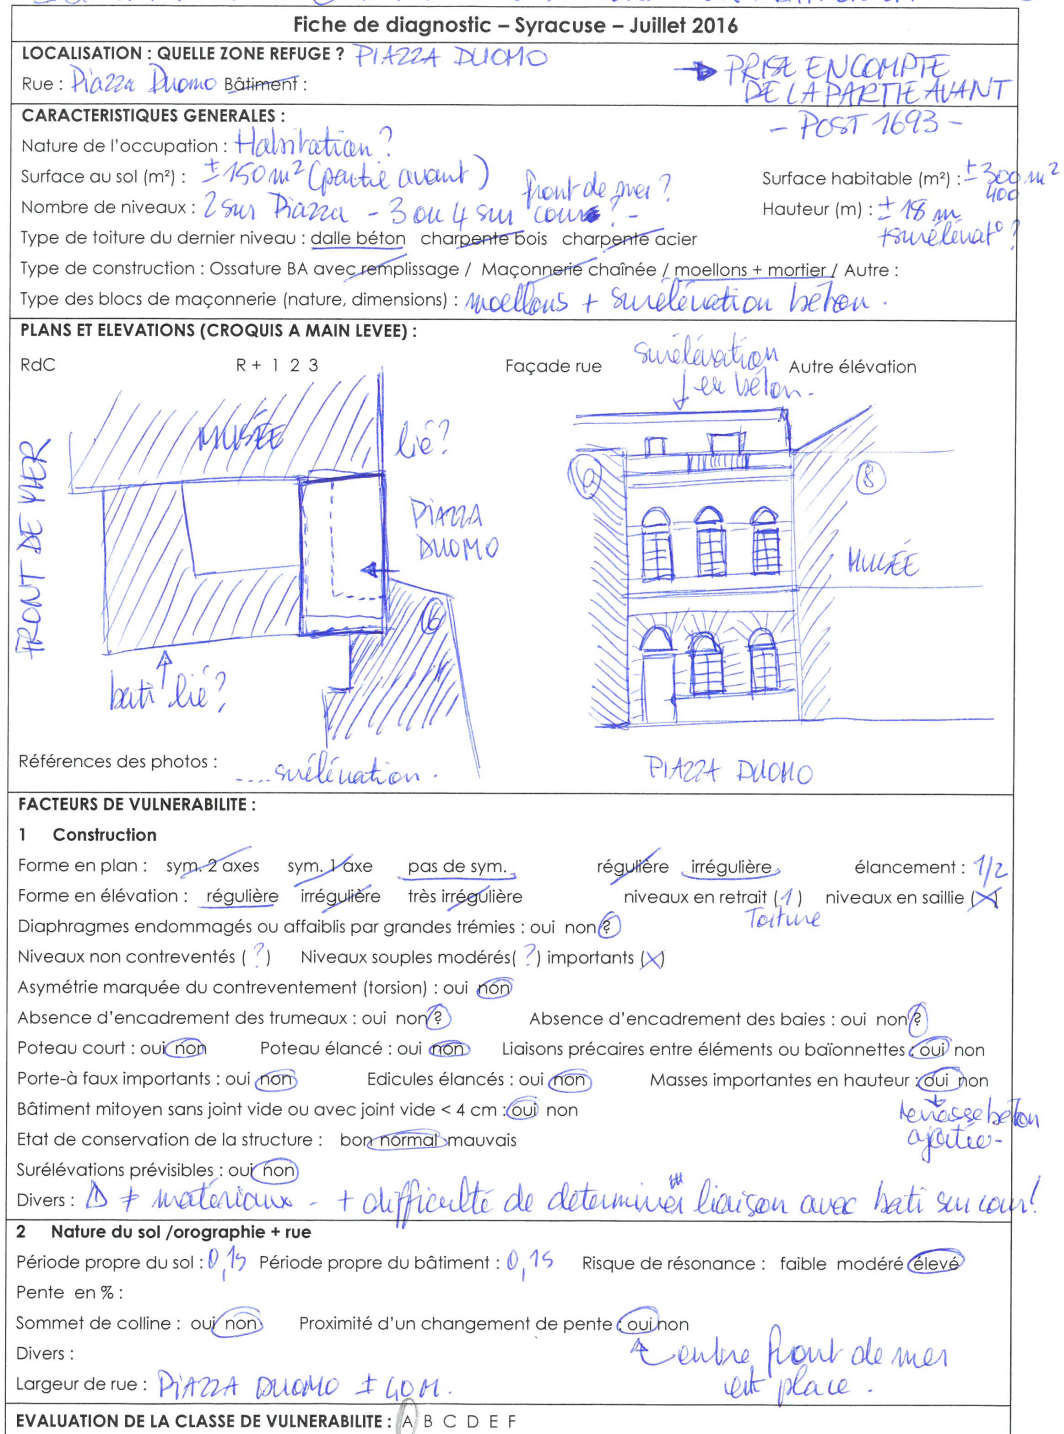 Fiche de diagnostic – Syracuse – Juillet 2016
LOCALISATION : QUELLE ZONE REFUGE ? PIAZZA DUOMO
Rue : Piazza Duomo Bâtiment :
→ PRISE EN COMPTE
DE LA PARTIE AVANT
- POST 1693 -
CARACTERISTIQUES GENERALES :
Nature de l'occupation : Habitation ?
Surface au sol (m²) : ± 150 m² (partie avant) Surface habitable (m²) : ± 300 m²
400
front de mer ?
Nombre de niveaux : 2 sur Piazza - 3 ou 4 sur cour ? - Hauteur (m) : ± 18 m
+ surélévat° ?
Type de toiture du dernier niveau : dalle béton charpente bois charpente acier
Type de construction : Ossature BA avec remplissage / Maçonnerie chaînée / moellons + mortier / Autre :
Type des blocs de maçonnerie (nature, dimensions) : moellons + surélévation béton.
PLANS ET ELEVATIONS (CROQUIS A MAIN LEVEE) :
RdC R + 1 2 3 Façade rue Autre élévation
surélévation
en béton.
MUSÉE
lié ?
FRONT DE MER
PIAZZA
DUOMO
6
bati lié ?
6
8
MUSÉE
Références des photos :
.... surélévation.
PIAZZA DUOMO
FACTEURS DE VULNERABILITE :
1 Construction
Forme en plan : sym. 2 axes sym. 1 axe pas de sym. régulière irrégulière élancement : 1/2
Forme en élévation : régulière irrégulière très irrégulière niveaux en retrait (1) niveaux en saillie (X)
Toiture
Diaphragmes endommagés ou affaiblis par grandes trémies : oui non ?
Niveaux non contreventés ( ? ) Niveaux souples modérés( ? ) importants (X)
Asymétrie marquée du contreventement (torsion) : oui non
Absence d'encadrement des trumeaux : oui non ? Absence d'encadrement des baies : oui non ?
Poteau court : oui non Poteau élancé : oui non Liaisons précaires entre éléments ou baïonnettes : oui non
Porte-à faux importants : oui non Edicules élancés : oui non Masses importantes en hauteur : oui non
terrasse béton
ajoutée -
Bâtiment mitoyen sans joint vide ou avec joint vide < 4 cm : oui non
Etat de conservation de la structure : bon normal mauvais
Surélévations prévisibles : oui non
Divers : Δ ≠ matériaux - + difficulté de déterminer liaison avec bati sur cour !
2 Nature du sol /orographie + rue
Période propre du sol : 0,1s Période propre du bâtiment : 0,1s Risque de résonance : faible modéré élevé
Pente en % :
Sommet de colline : oui non Proximité d'un changement de pente : oui non
Divers :
entre front de mer
et place.
Largeur de rue : PIAZZA DUOMO ± 40 M.
EVALUATION DE LA CLASSE DE VULNERABILITE : A B C D E F